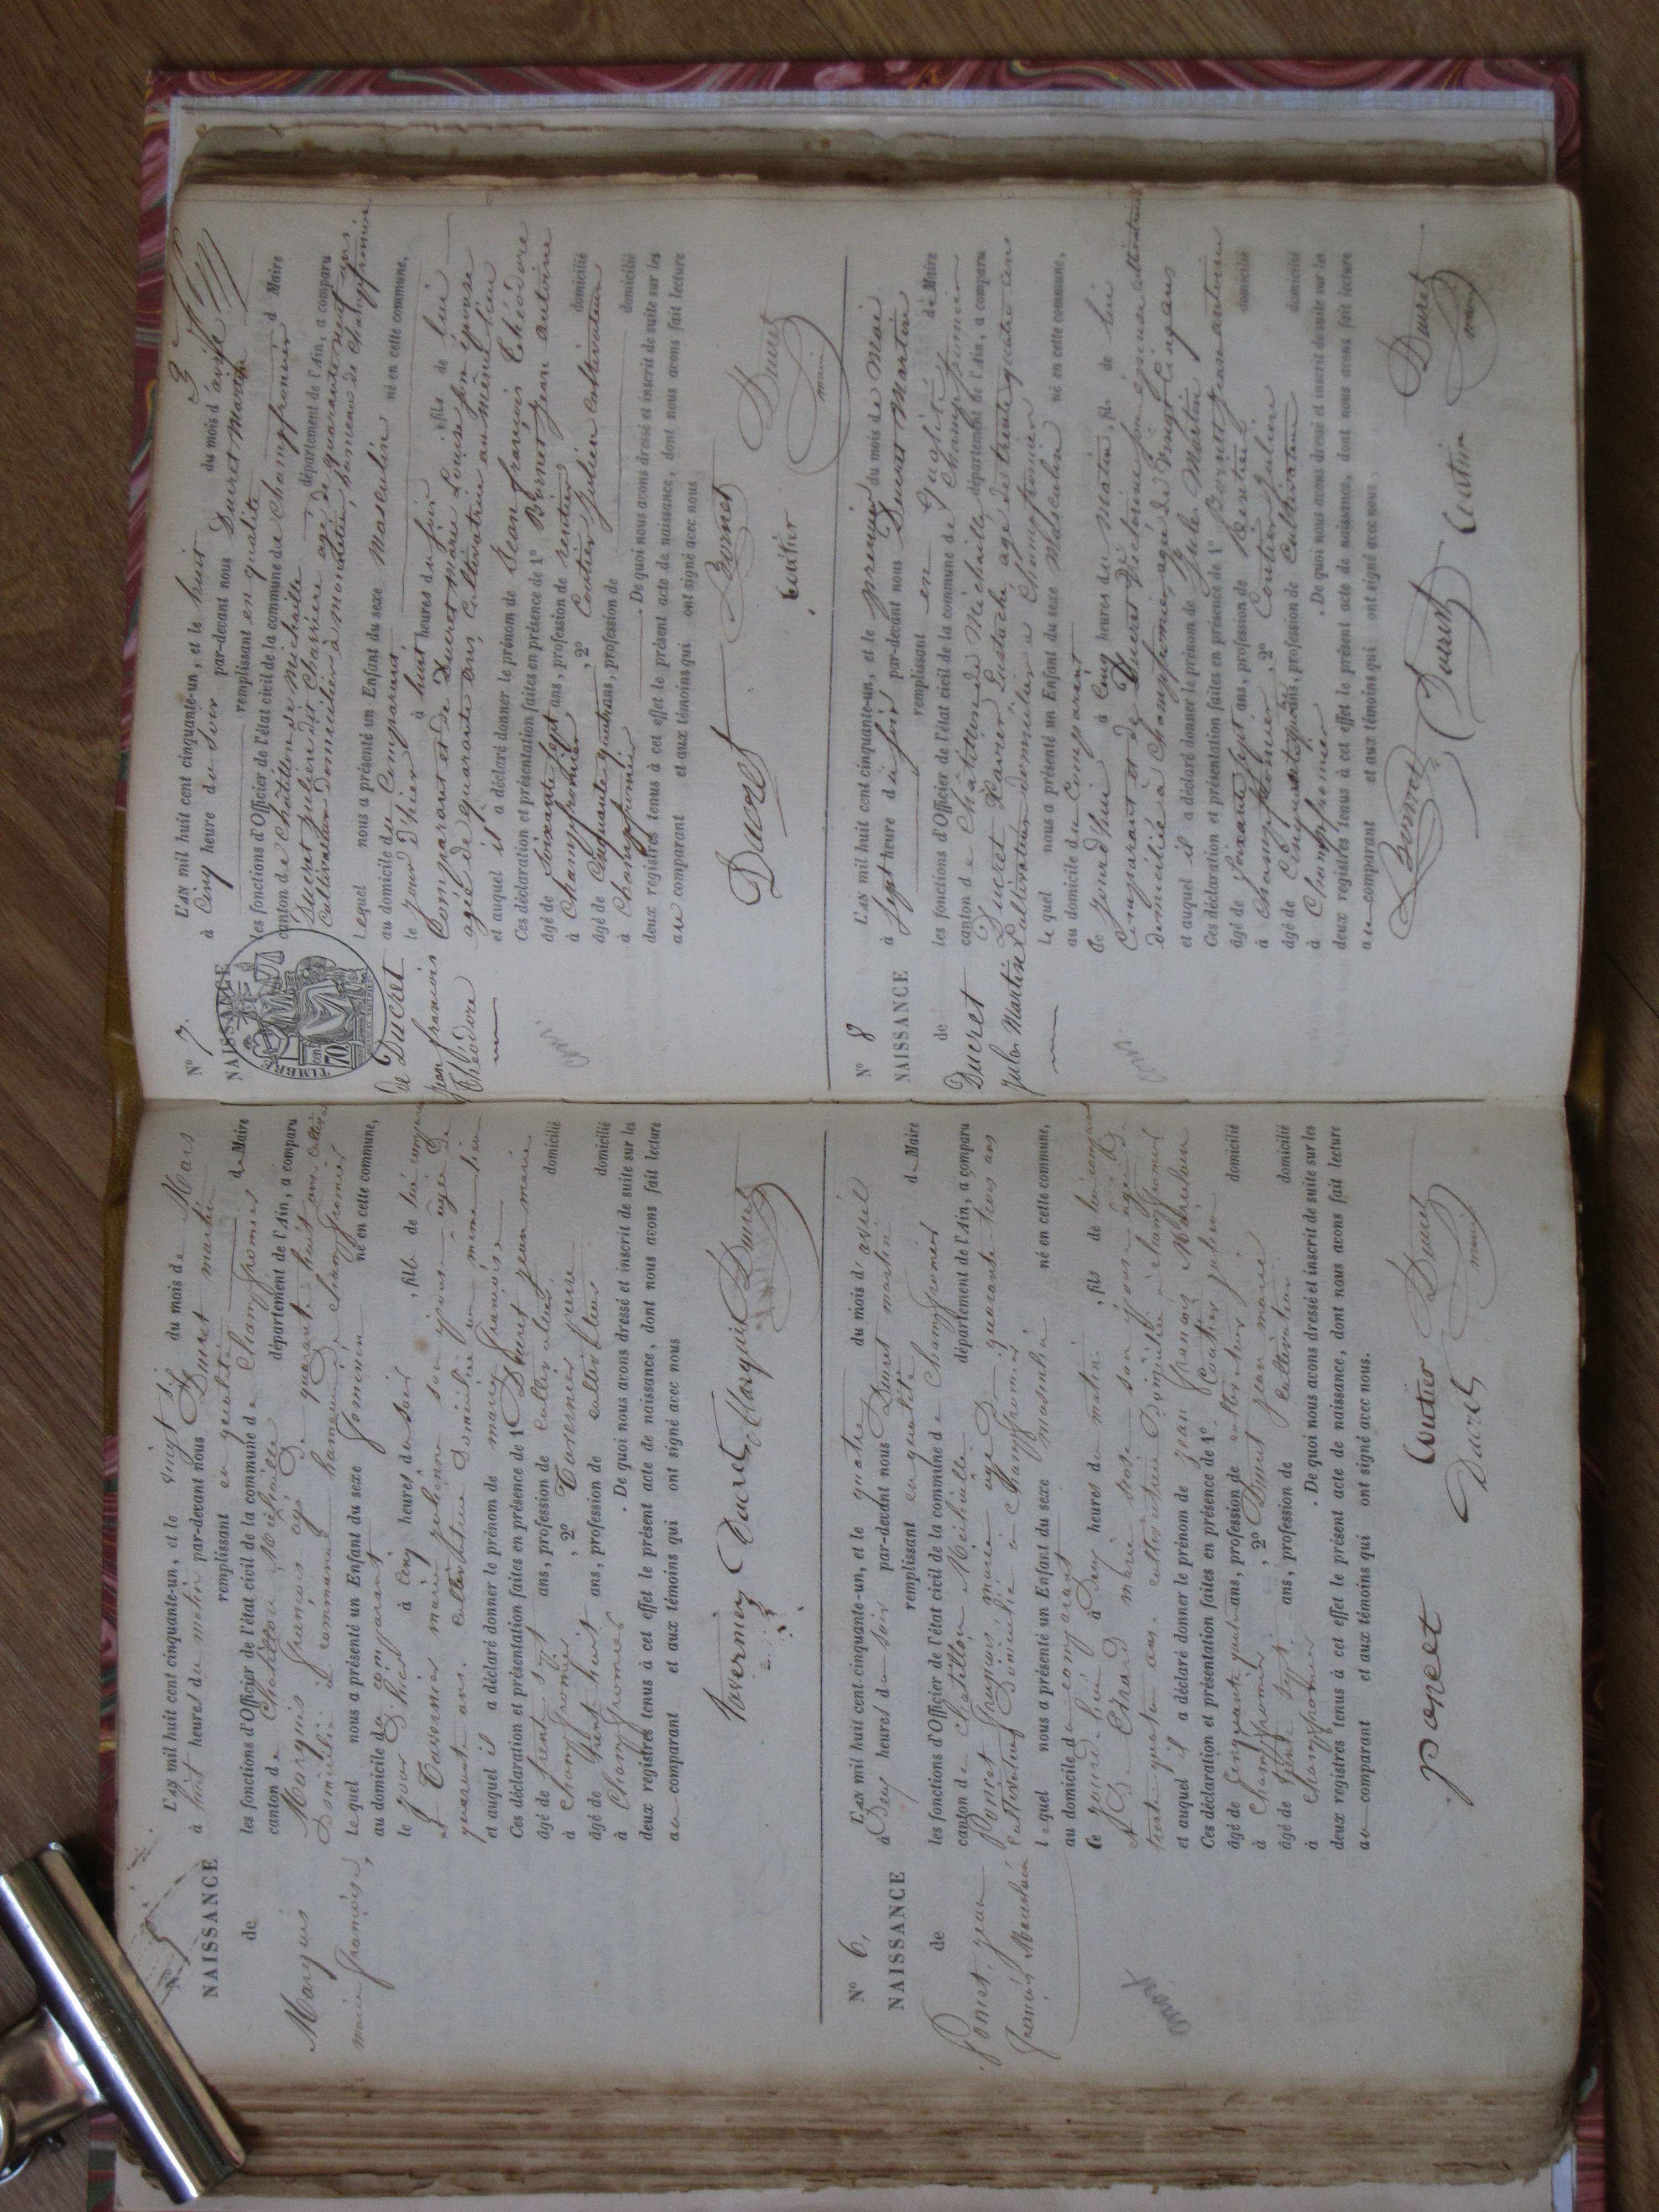 N° 5
NAISSANCE
de
Marquis
marie françoise
L'AN mil huit cent cinquante-un, et le vingt six du mois de Mars
à huit heures du matin par-devant nous Ducret martin
remplissant en qualité de Maire
les fonctions d'Officier de l'état civil de la commune de Champfromier
canton de Chatillon Michaille département de l'Ain, a comparu
Marquis françois agé de quarante huit ans
Domicilié
Lequel nous a présenté un Enfant du sexe féminin né en cette commune,
au domicile du comparant
le jour d'hier à cinq heures du soir, fille de lui comparant
et Tavernier marie son épouse agée de
quarante ans cultivatrice domiciliée au meme lieu
et auquel il a déclaré donner le prénom de marie françoise
Ces déclaration et présentation faites en présence de 1° Ducret jean marie
âgé de trent sept ans, profession de cultivateur domicilié
à Champfromier, 2° Tavernier
âgé de trent huit ans, profession de cultivateur domicilié
à Champfromier. De quoi nous avons dressé et inscrit de suite sur les
deux registres tenus à cet effet le présent acte de naissance, dont nous avons fait lecture
au comparant et aux témoins qui ont signé avec nous
Tavernier Ducret Marquis Ducret
N° 6
NAISSANCE
de
Poncet jean
françois Marcelain
L'AN mil huit cent cinquante-un, et le quatre du mois d'avril
à Deux heures du soir par-devant nous Ducret martin
remplissant en qualité de Maire
les fonctions d'Officier de l'état civil de la commune de Champfromier
canton de Chatillon Michaille département de l'Ain, a comparu
Poncet françois marie agé de quarante trois ans
cultivateur Domicilié à Champfromier
lequel nous a présenté un Enfant du sexe masculin né en cette commune,
au domicile du comparant
Ce jourd'hui à Deux heures du matin, fils de lui comparant
et de marie rose son épouse agée de
trente quatre ans cultivatrice Domiciliée à Champfromier
et auquel il a déclaré donner le prénom de jean françois Marcelain
Ces déclaration et présentation faites en présence de 1° Coutier julien
âgé de Cinquante quatre ans, profession de cultivateur domicilié
à Champfromier, 2° Ducret jean marie
âgé de trent sept ans, profession de cultivateur domicilié
à Champfromier. De quoi nous avons dressé et inscrit de suite sur les
deux registres tenus à cet effet le présent acte de naissance, dont nous avons fait lecture
au comparant et aux témoins qui ont signé avec nous.
poncet Coutier Ducret
Ducret maire
3
N° 7.
NAISSANCE
TIMBRE
70
de Ducret
jean françois
Théodore
L'AN mil huit cent cinquante-un, et le huit du mois d'avril
à Cinq heure du soir par-devant nous Ducret Martin
remplissant en qualité d Maire
les fonctions d'Officier de l'état civil de la commune de Champfromier
canton de Châtillon de Michaille département de l'Ain, a comparu
Ducret julien dit Charrière agé de quarante neuf ans
Cultivateur domicilié à monnetier hameau de Champfromier
Lequel nous a présenté un Enfant du sexe Masculin né en cette commune,
au domicile du Comparant
le jour d'hier à huit heures du soir, fils de lui
Comparant et de Ducret marie Louise son épouse
agée de quarante ans, Cultivatrice au même lieu
et auquel il a déclaré donner le prénom de Jean françois Théodore
Ces déclaration et présentation faites en présence de 1° Bornet Jean antoine
âgé de Soixante sept ans, profession de rentier domicilié
à Champfromier, 2° Coutier Julien Cultivateur
âgé de Cinquante quatre ans, profession de domicilié
à Champfromier. De quoi nous avons dressé et inscrit de suite sur les
deux registres tenus à cet effet le présent acte de naissance, dont nous avons fait lecture
au comparant et aux témoins qui ont signé avec nous
Ducret Bornet Ducret
Coutier maire
N° 8
NAISSANCE
de
Ducret
jules Martin
L'AN mil huit cent cinquante-un, et le premier du mois de Mai
à Sept heure du soir par-devant nous Ducret Martin
remplissant en qualité de Maire
les fonctions d'Officier de l'état civil de la commune de Champfromier
canton de Châtillon de Michaille département de l'Ain, a comparu
Ducret Xavier Eustache agé de trente quatre ans
Cultivateur domicilié à Champfromier
lequel nous a présenté un Enfant du sexe Masculin né en cette commune,
au domicile du Comparant
Ce jourd'hui à Cinq heures du Matin, fils de lui
Comparant et de Ducret Victorine son épouse Cultivatrice
domiciliée à Champfromier, agée de vingt Cinq ans
et auquel il a déclaré donner le prénom de Jules Martin
Ces déclaration et présentation faites en présence de 1° Bornet jean antoine
âgé de Soixante sept ans, profession de Rentier domicilié
à Champfromier, 2° Coutier Julien
âgé de Cinquante quatre ans, profession de Cultivateur domicilié
à Champfromier. De quoi nous avons dressé et inscrit de suite sur les
deux registres tenus à cet effet le présent acte de naissance, dont nous avons fait lecture
au comparant et aux témoins qui ont signé avec nous
Bornet Ducret Coutier Ducret
maire